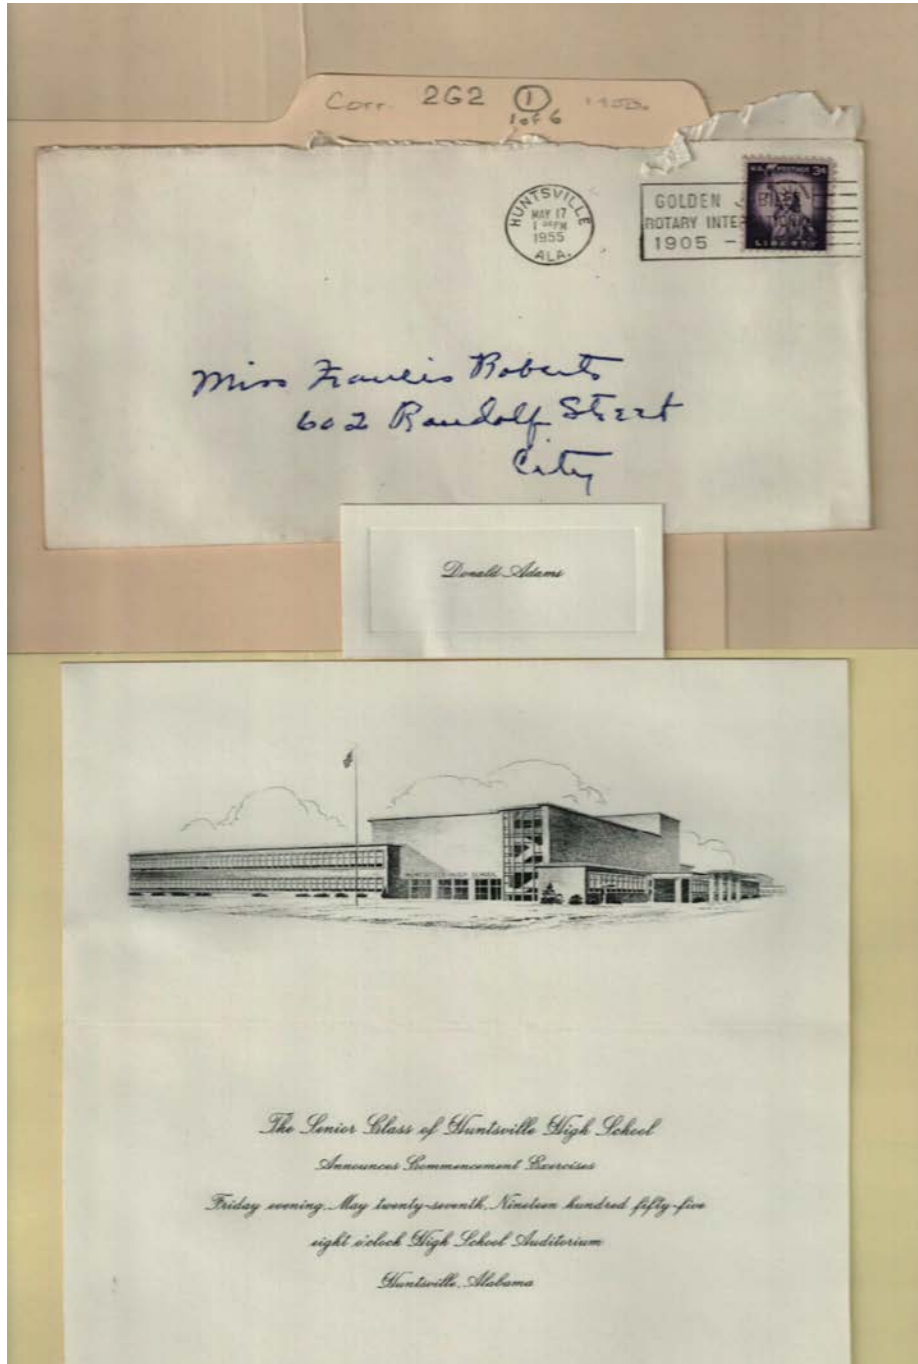 Corr. 2G2 1
1 of 6
HUNTSVILLE
MAY 17
1 PM
1955
ALA.
GOLDEN
ROTARY INTE
1905 -
U.S. POSTAGE 3¢
LIBERTY
Miss Francis Roberts
602 Randolf Street
City
Donald Adams
HUNTSVILLE HIGH SCHOOL
The Senior Class of Huntsville High School
Announces Commencement Exercises
Friday evening, May twenty-seventh, Nineteen hundred fifty-five
eight o'clock High School Auditorium
Huntsville, Alabama